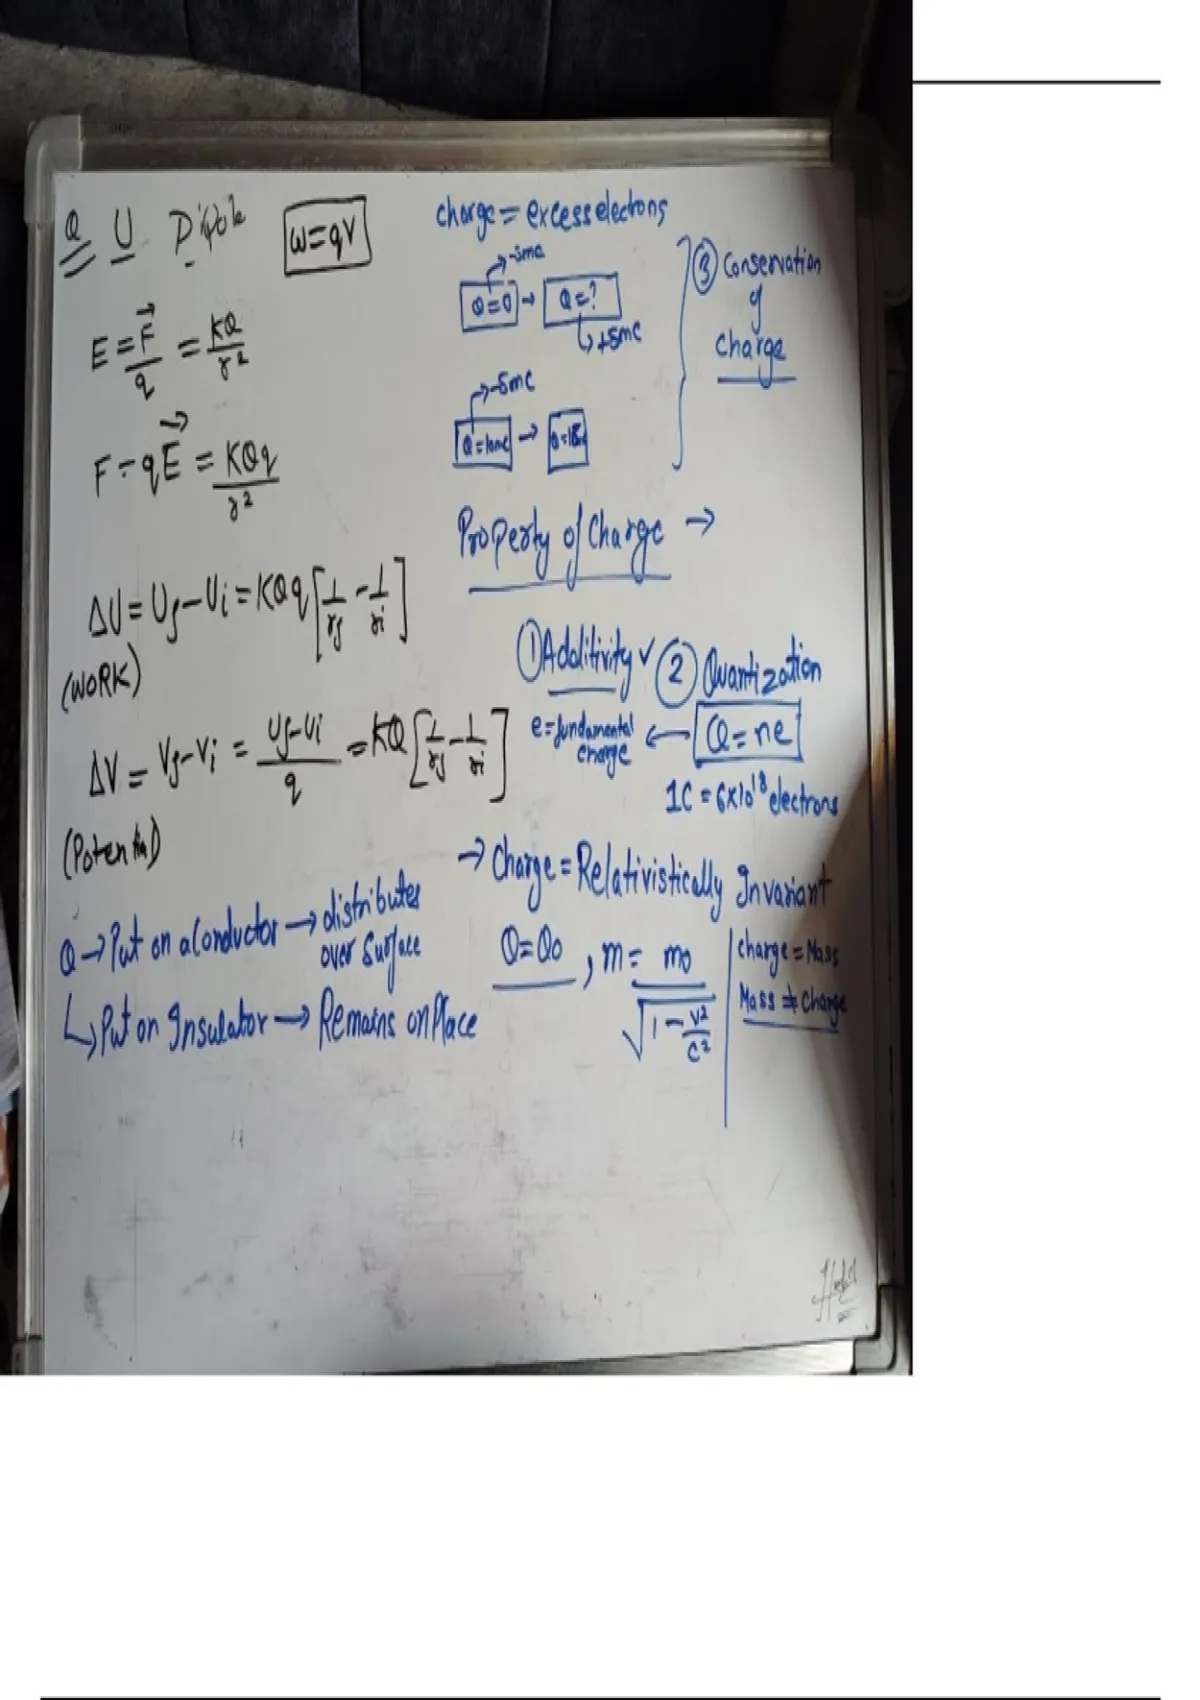 Q U Dipole W=qV
E = F⃗/q = KQ/r²
F = qE⃗ = KQq/r²
ΔU = Uf - Ui = KQq [1/rf - 1/ri]
(WORK)
ΔV = Vf - Vi = Uf-Ui/q = KQ [1/rf - 1/ri]
(Potential)
Q → Put on a Conductor → distributes
over Surface
↳ Put on Insulator → Remains on Place
charge = excess electons
-5mc
Q=0 → Q=?
↳ +5mc
-5mc
Q=10mc →
③ Conservation
of
Charge
Property of Charge →
① Additivity ✓ ② Quantization
e = fundamental charge ← Q = ne
1C = 6x10¹⁸ electrons
→ Charge = Relativistically Invariant
Q=Q₀ , m = m₀/√1 - v²/c²
Charge = Mass
Mass ≠ Charge